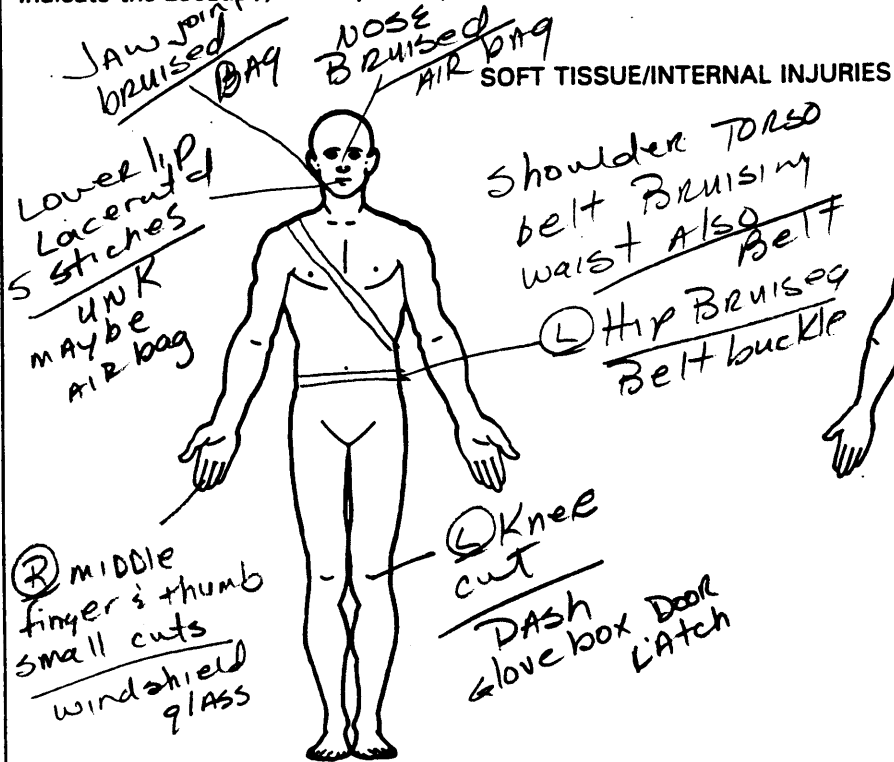 JAW joint
bruised
BAG
NOSE
Bruised
AIR bag
SOFT TISSUE/INTERNAL INJURIES
Lower lip
Lacerat d
5 stiches
UNK
mAybe
AIR bag
shoulder TORSO
belt Bruising
waist Also
Belt
(L) Hip Bruised
Belt buckle
(R) MIDDle
finger & thumb
small cuts
windshield
glAss
(L) Knee
cut
DAsh
Glove box DooR
LAtch